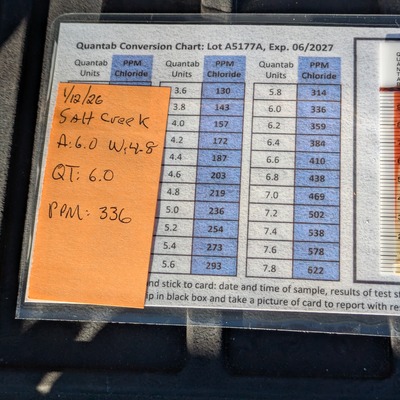 Quantab Conversion Chart: Lot A5177A, Exp. 06/2027
Quantab Units PPM Chloride Quantab Units PPM Chloride Quantab Units PPM Chloride
3.6 130 5.8 314
3.8 143 6.0 336
4.0 157 6.2 359
4.2 172 6.4 384
4.4 187 6.6 410
4.6 203 6.8 438
4.8 219 7.0 469
5.0 236 7.2 502
5.2 254 7.4 538
5.4 273 7.6 578
5.6 293 7.8 622
1/12/26
Salt Creek
A: 6.0 W: 4.8
QT: 6.0
PPM: 336
nd stick to card: date and time of sample, results of test st
p in black box and take a picture of card to report with res
QUANTA